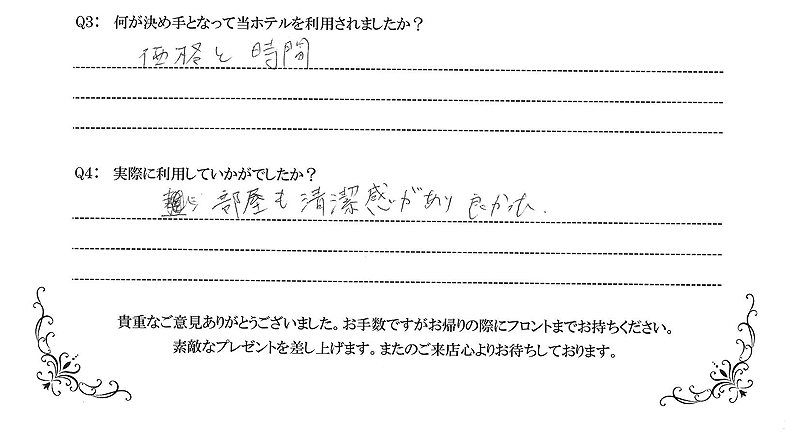 Q3: 何が決め手となって当ホテルを利用されましたか？
価格と時間
Q4: 実際に利用していかがでしたか？
部屋も清潔感があり良かった.
貴重なご意見ありがとうございました。お手数ですがお帰りの際にフロントまでお持ちください。
素敵なプレゼントを差し上げます。またのご来店心よりお待ちしております。